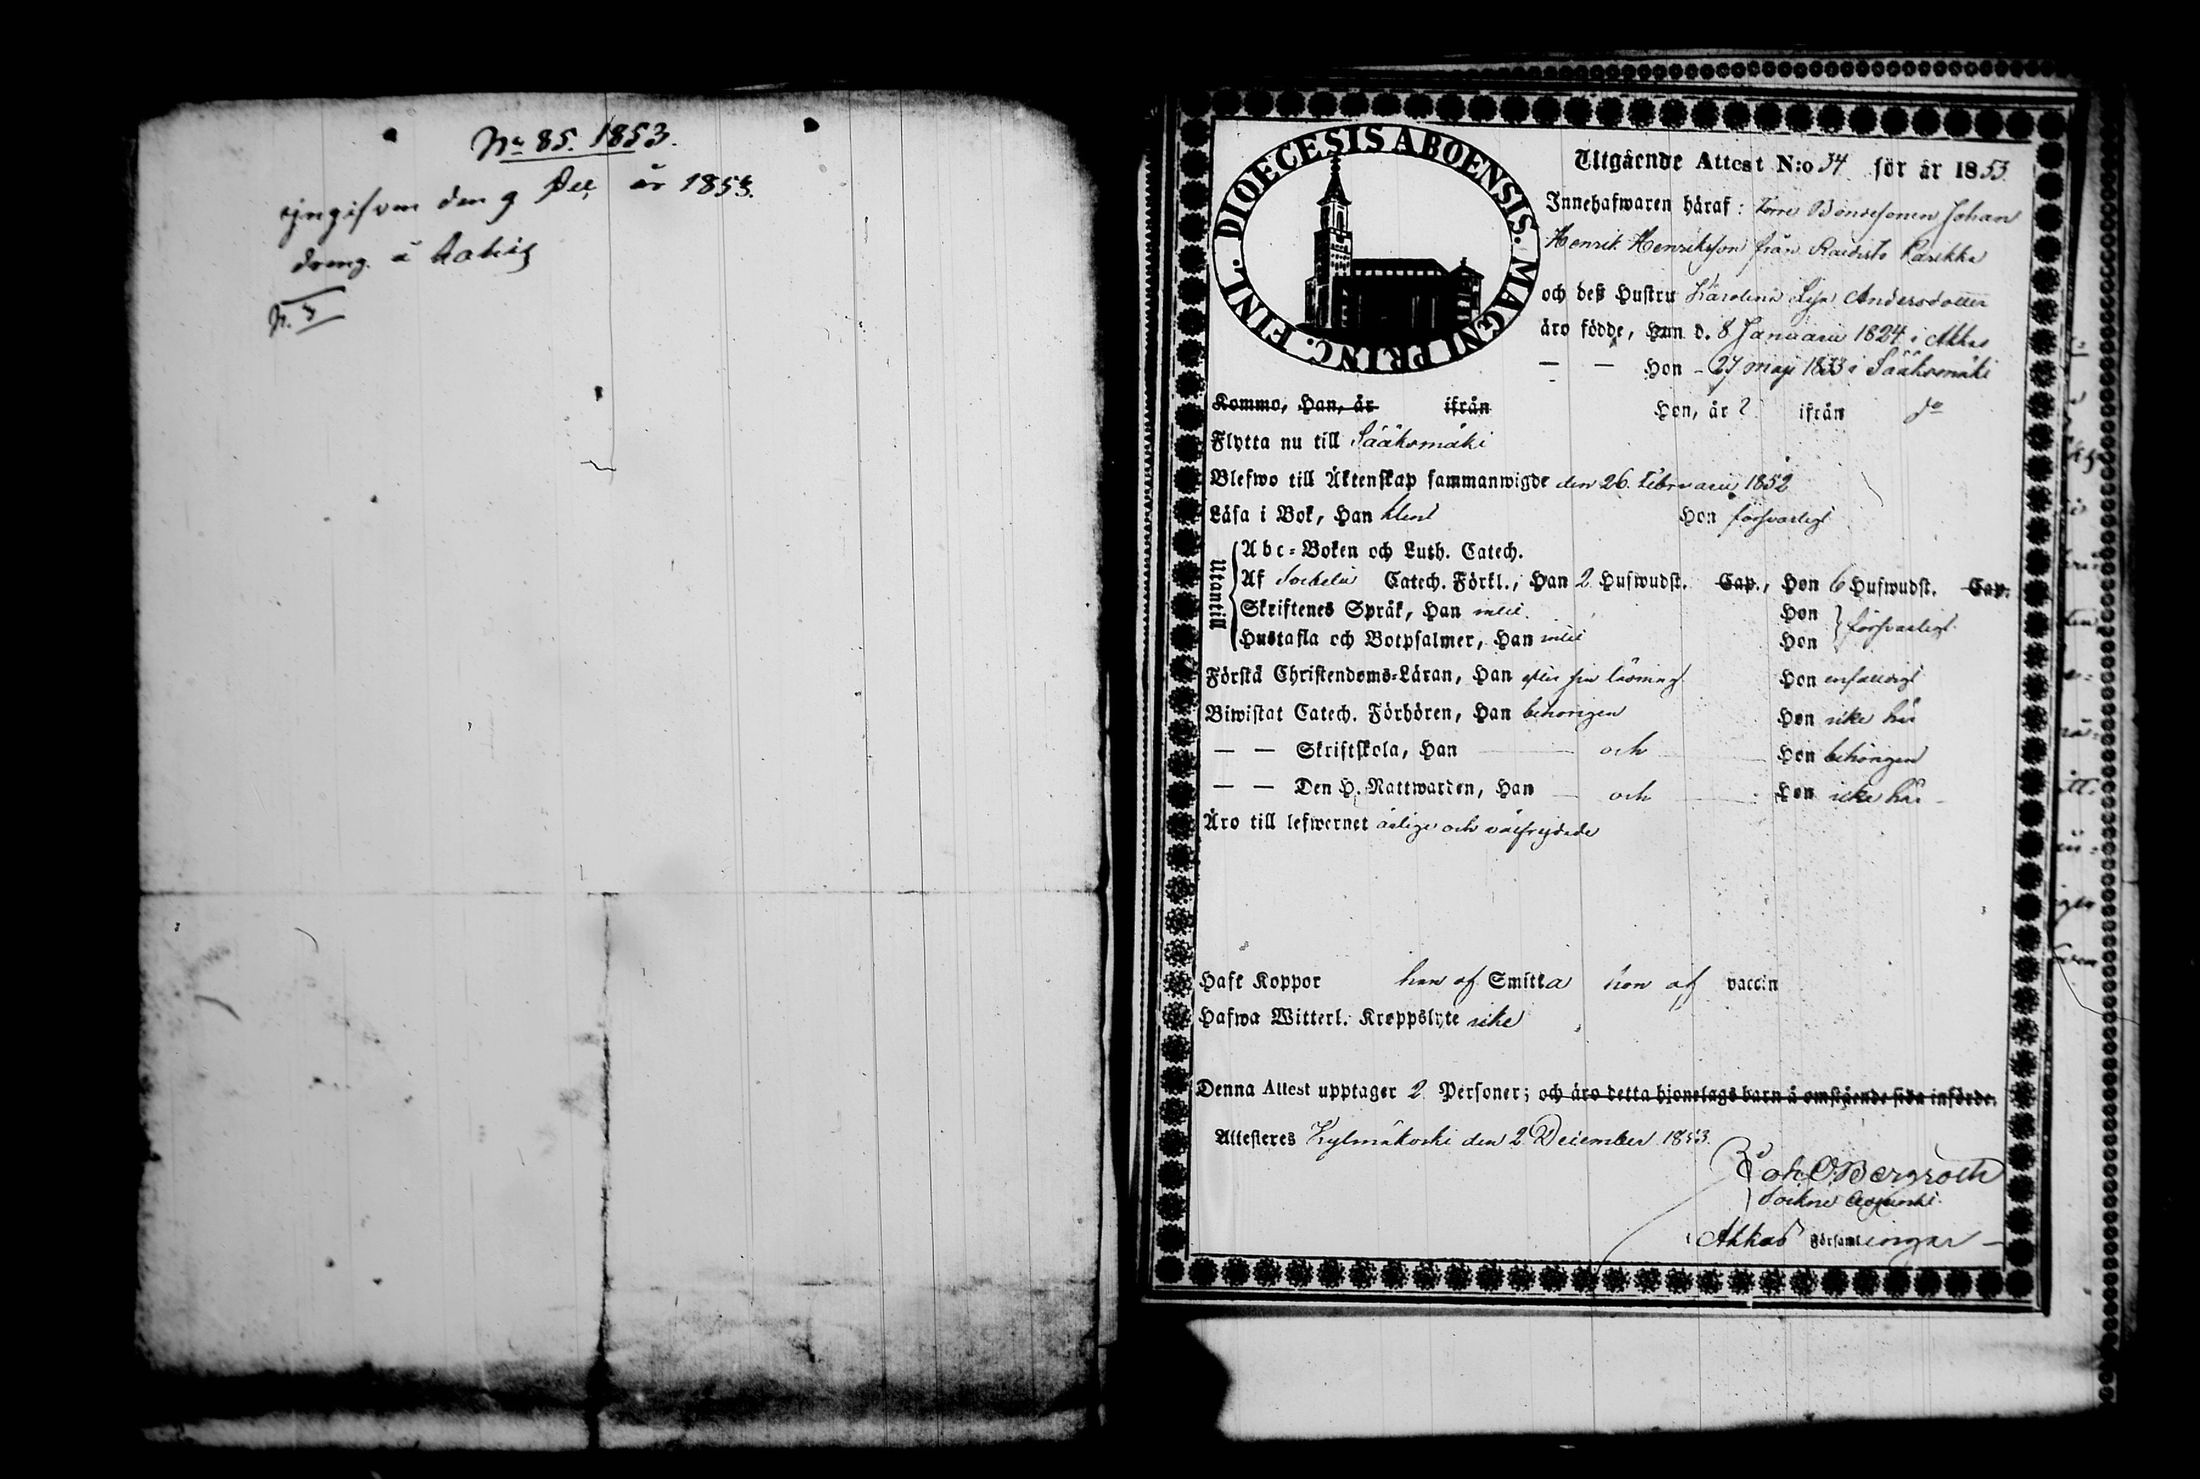 No 85. 1853.
den 9 Dec. år 1853.
dräng å
DIOECESIS ABOENSIS. MAGNI PRINC. FINL.
Utgående Attest N:o 34 för år 1853
Innehafwaren häraf: Förre Bondesonen Johan
Henrik Henriksson från Raidisto
och deß Hustru Karolina Andersdotter
äro födde, Han d. 8 Januarii 1824 i Akkas
— — Hon - 27 maji 1833 i Sääksmäki
Kommo, Han, år ifrån Hon, år ? ifrån do
Flytta nu till Sääksmäki
Blefwo till Äktenskap sammanwigde den 26 Februarii 1852
Läsa i Bok, Han klent Hon försvarligt
Utantill
Abc-Boken och Luth. Catech.
Af Catech. Förkl., Han 2 Hufwudst. Cap., Hon 6 Hufwudst. Cap.
Skriftenes Språk, Han intet Hon
Hustafla och Botpsalmer, Han intet Hon försvarligt
Förstå Christendoms-Läran, Han efter sin läsning Hon enfaldigt
Biwistat Catech. Förhören, Han behörigen Hon icke här
— — Skriftskola, Han och Hon behörigen
— — Den H. Nattwarden, Han och Hon icke här
Äro till lefwernet ärlige och välfrejdade
Haft Koppor han af Smitta hon af vaccin
Hafwa Witterl. Kroppslyte icke
Denna Attest upptager 2 Personer; och äro detta hjonelags barn å omstående sida införde.
Attesteras Kylmäkoski den 2 December 1853.
Joh O Bergroth
Akkas Församlingar